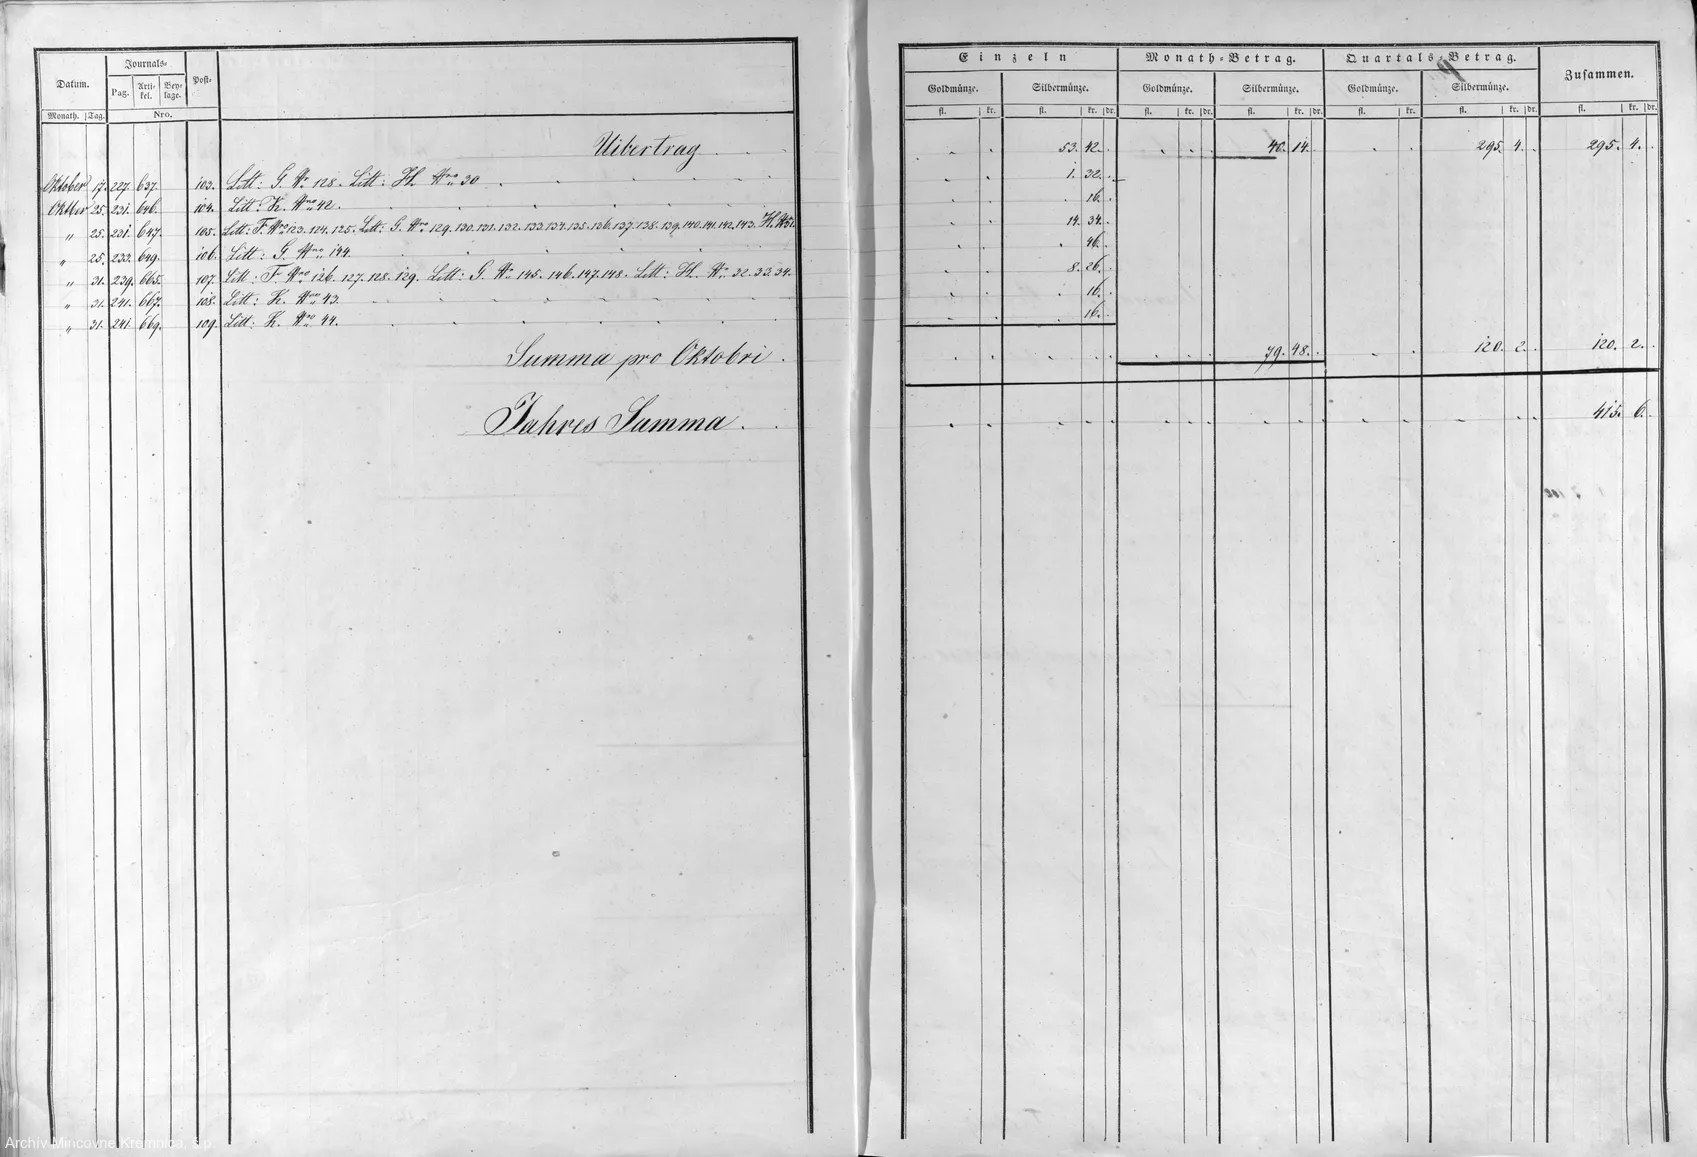 Datum. Journals= Post= Einzeln Monath=Betrag. Quartals=Betrag. Zusammen.
Pag. Arti-kel. Bey-lage. Goldmünze. Silbermünze. Goldmünze. Silbermünze. Goldmünze. Silbermünze.
Monath. Tag. Nro. fl. kr. fl. kr. dr. fl. kr. dr. fl. kr. dr. fl. kr. fl. kr. dr. fl. kr. dr.
Uibertrag 53. 42. 40. 14. 295. 4. 295. 4.
Oktober 17. 227. 637. 103. Litt: G. Nr. 128. Litt: H. Nro 30 1. 32.
Oktber 25. 231. 646. 104. Litt: K. Nro 42. 16.
" 25. 231. 647. 105. Litt: F. Nro 123. 124. 125. Litt: G. Nro 129. 130. 131. 132. 133. 134. 135. 136. 137. 138. 139. 140. 141. 142. 143. H. N 31. 14. 34.
" 25. 233. 649. 106. Litt: G. Nro 144. 46.
" 31. 239. 665. 107. Litt: F. Nro 126. 127. 128. 129. Litt: G. Nr. 145. 146. 147. 148. Litt: H. Nr. 32. 33. 34. 8. 26.
" 31. 241. 667. 108. Litt: K. Nro 43. 16.
" 31. 241 669. 109. Litt: K. Nro 44. 16.
Summa pro Oktobri 79. 48. 120. 2. 120. 2.
Jahres Summa 415. 6.
Archív Mincovne Kremnica, š.p.